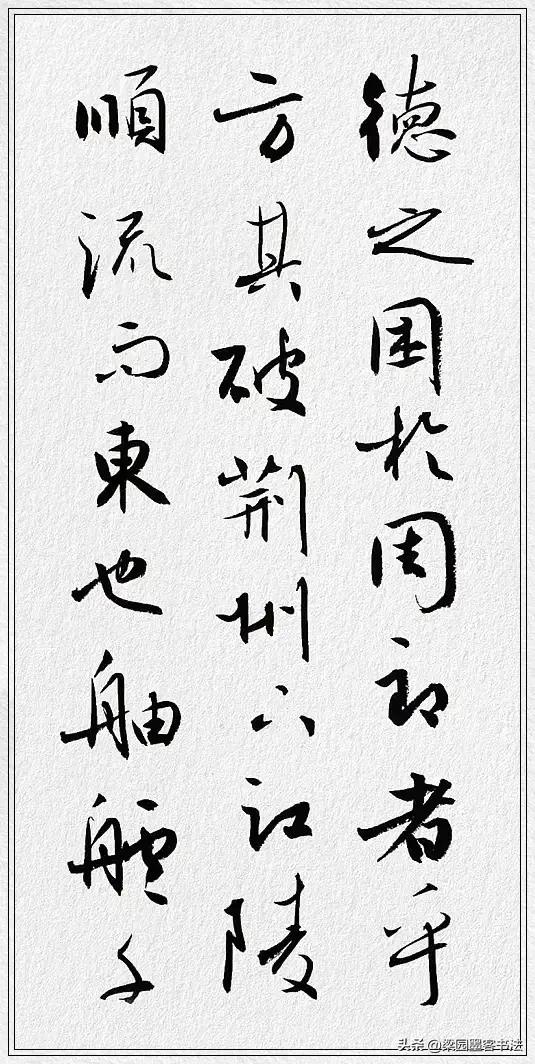 德之困於周郎者乎
方其破荆州下江陵
順流而東也舳艫千
头条@梁园墨客书法